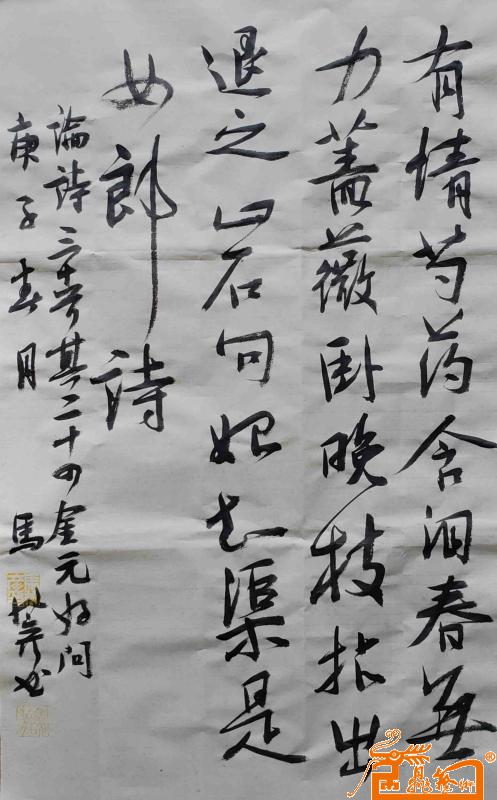 有情芍药含泪春無
力蔷薇卧晚枝拈出
退之山石句始知渠是
女郎詩
論詩三十首其二十四金元好问
庚子春月 馬 书